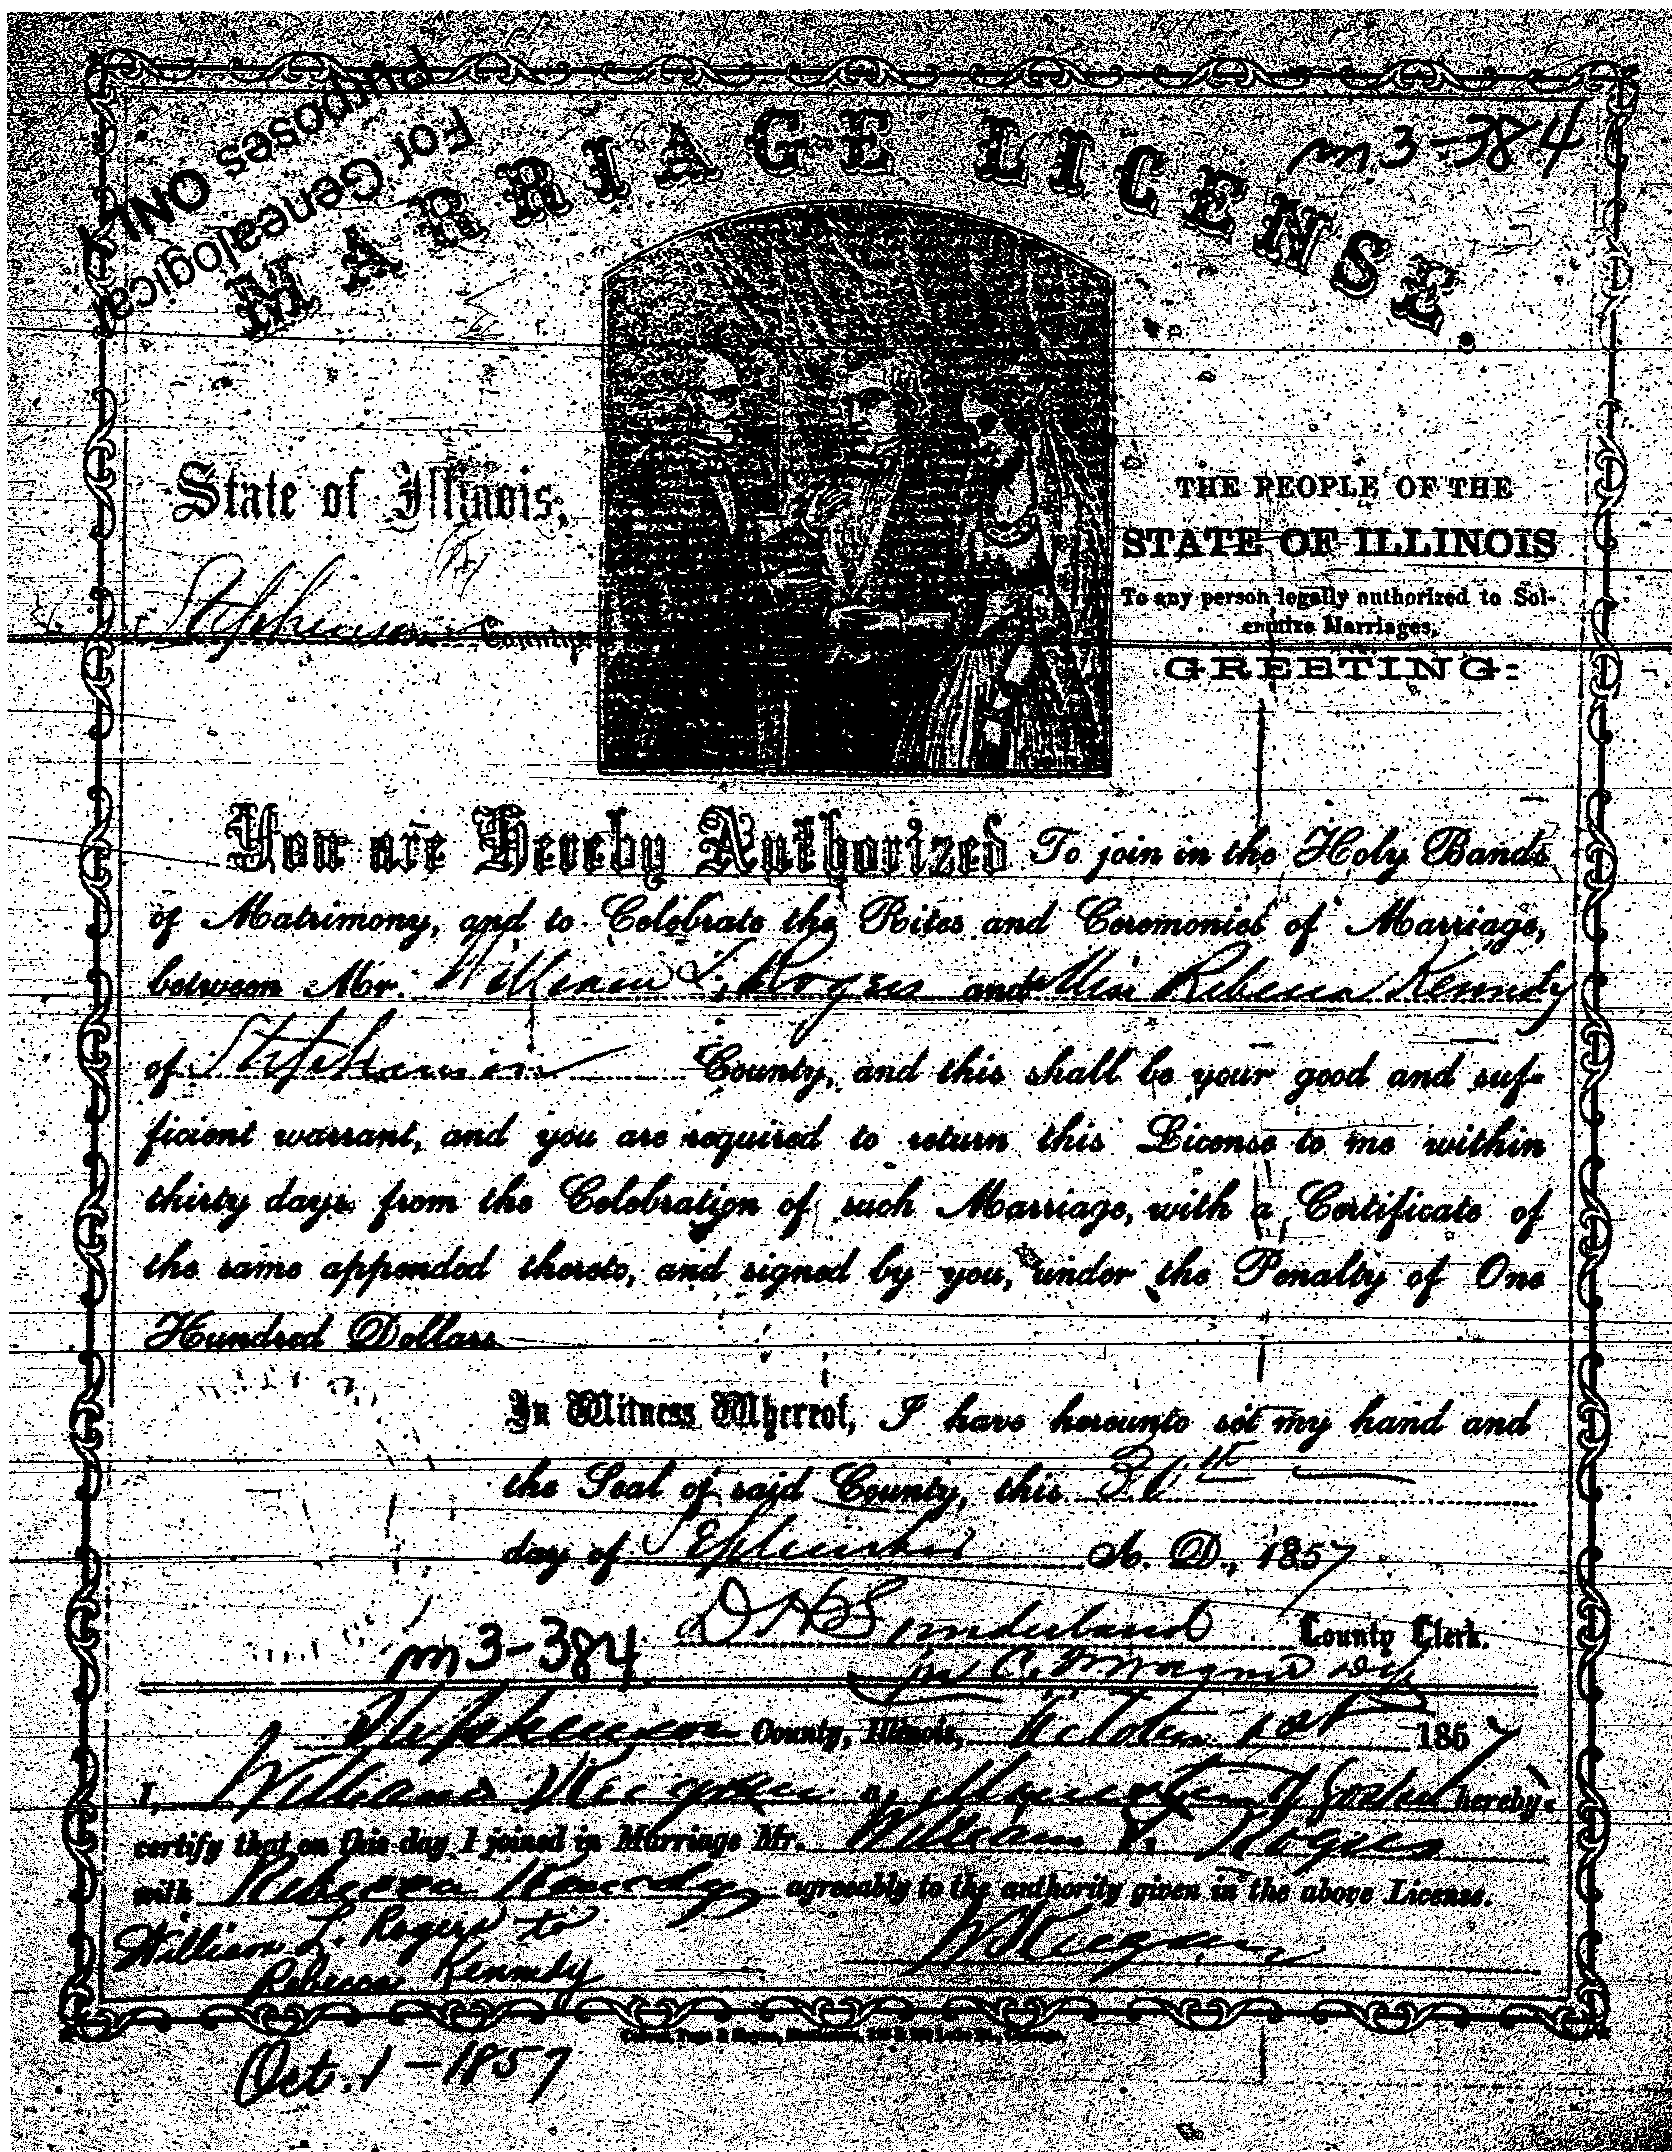 For Genealogical
Purposes ONLY
m 3-384
MARRIAGE LICENSE.
State of Illinois,
Stephenson County
THE PEOPLE OF THE
STATE OF ILLINOIS
To any person legally authorized to Sol-
emnize Marriages,
GREETING:
You are Hereby Authorized To join in the Holy Bands
of Matrimony, and to Celebrate the Rites and Ceremonies of Marriage,
between Mr. William L. Rogers and Miss Rebecca Kennedy
of Stephenson County, and this shall be your good and suf-
ficient warrant, and you are required to return this License to me within
thirty days from the Celebration of such Marriage, with a Certificate of
the same appended thereto, and signed by you, under the Penalty of One
Hundred Dollars
In Witness Whereof, I have hereunto set my hand and
the Seal of said County, this 30th
day of September A. D., 1857
D H Sunderland County Clerk.
m3-384
Stephenson County, Illinois, October 1st 1857
I, William a Minister of Gospel hereby
certify that on this day I joined in Marriage Mr. William L. Rogers
with Rebecca Kennedy agreeably to the authority given in the above License.
William L. Rogers to
Rebecca Kennedy
Oct. 1-1857